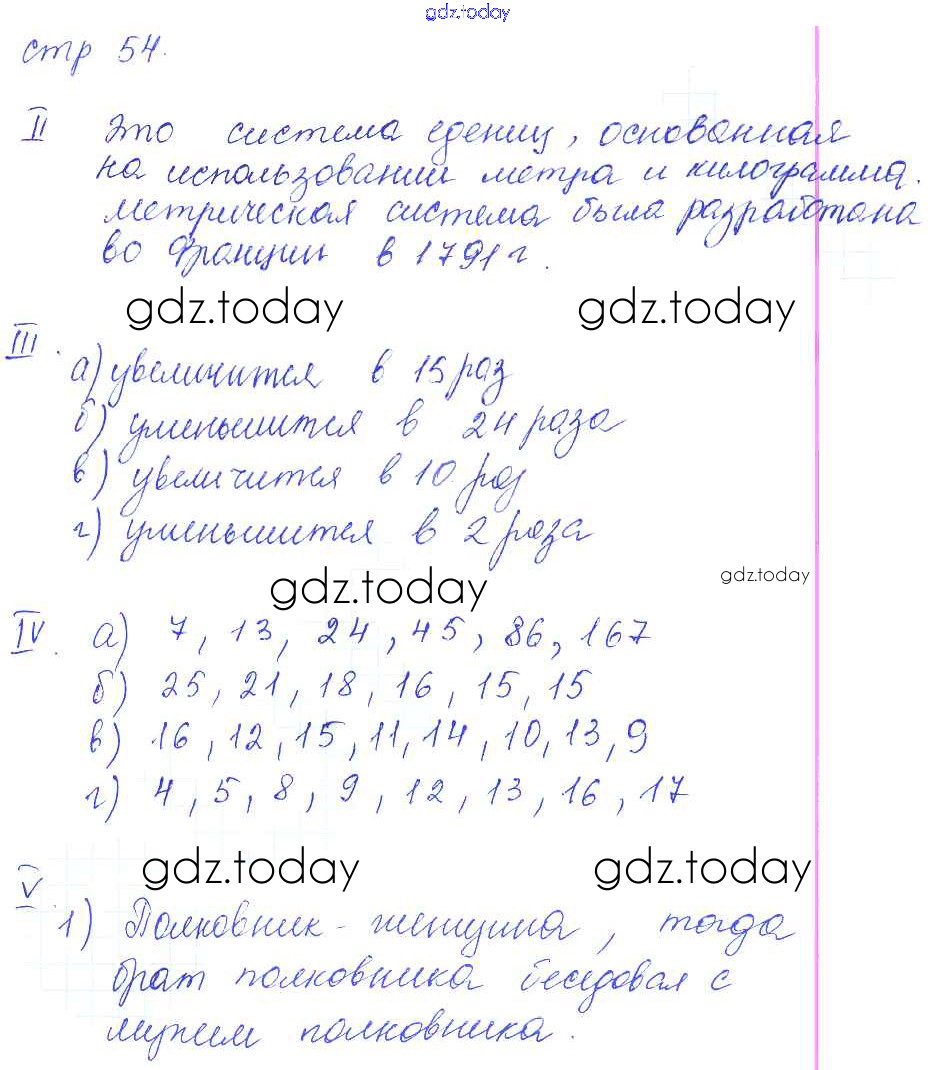 gdz.today
стр 54.
II Это система едениц, основанная
на использовании метра и килограмма.
метрическая система была разработана
во Франции в 1791г.
gdz.today gdz.today
III. а) увеличится в 15 раз
б) уменьшится в 24 раза
в) увеличится в 10 раз
г) уменьшится в 2 раза
gdz.today gdz.today
IV. а) 7, 13, 24, 45, 86, 167
б) 25, 21, 18, 16, 15, 15
в) 16, 12, 15, 11, 14, 10, 13, 9
г) 4, 5, 8, 9, 12, 13, 16, 17
gdz.today gdz.today
V. 1) Полковник - женщина, тогда
брат полковника беседовал с
мужем полковника.